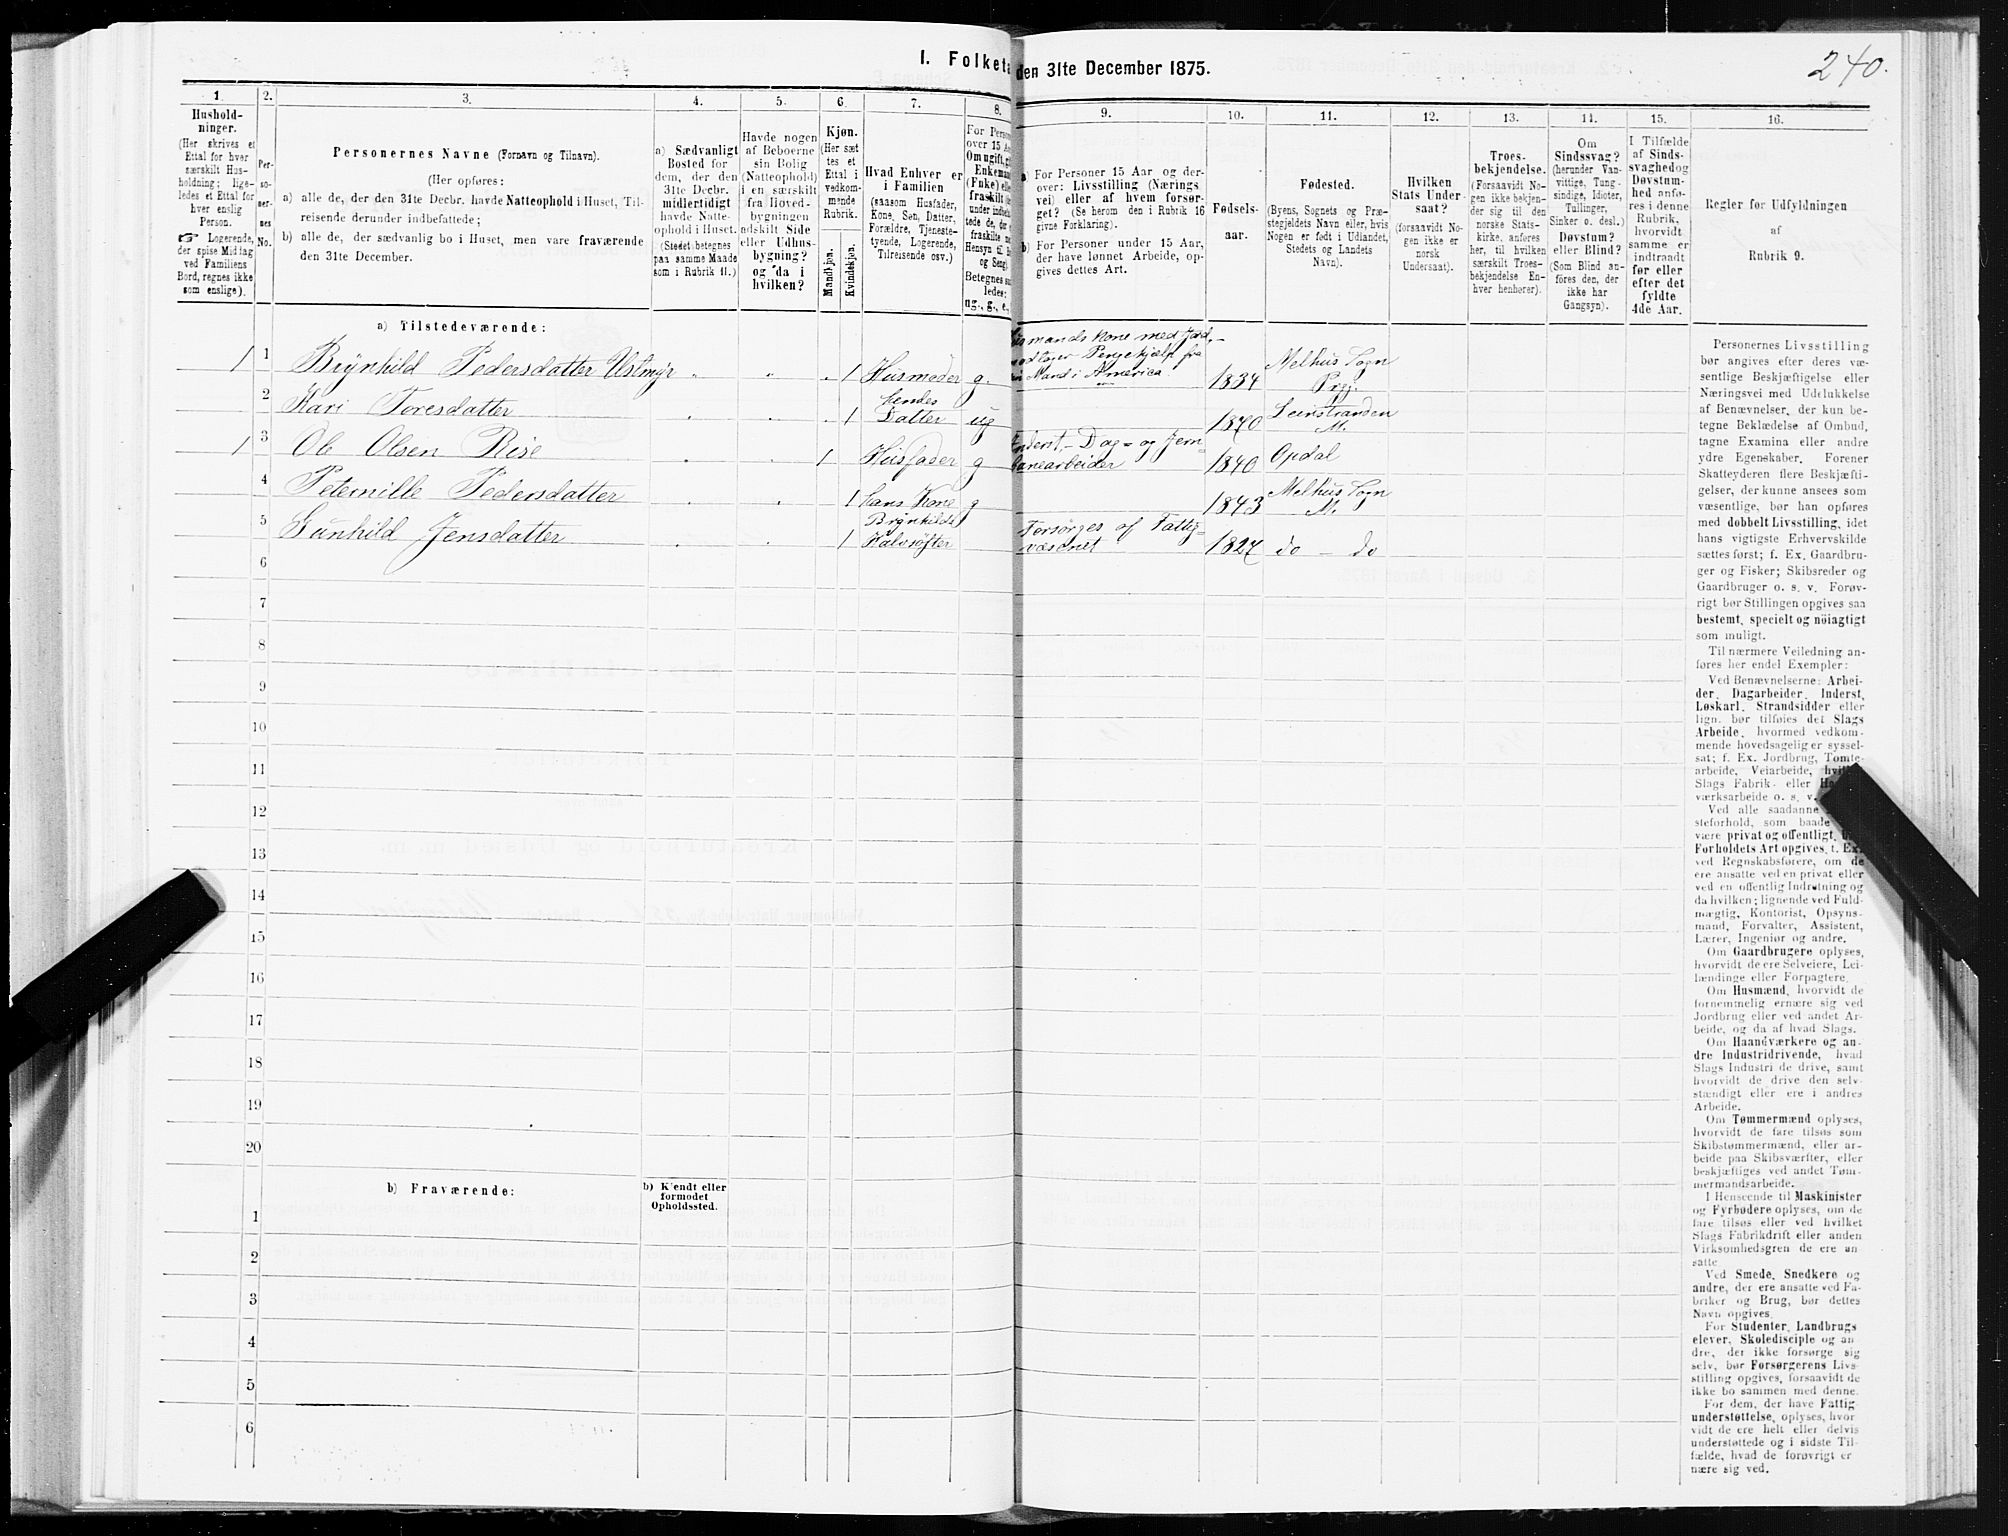 I. Folketæ den 31te December 1875.
240.
1. 2. 3. 4. 5. 6. 7. 8. 9. 10. 11. 12. 13. 14. 15. 16.
Hushold-
ninger.
(Her skrives et
Ettal for hver
særskilt Hus-
holdning; lige-
ledes et Ettal for
hver enslig
Person.
☞ Logerende,
der spise Middag
ved Familiens
Bord, regnes ikke
som enslige).
Per-
so-
ner-
nes
No.
Personernes Navne (Fornavn og Tilnavn).
(Her opføres:
a) alle de, der den 31te Decbr. havde Natteophold i Huset, Til-
reisende derunder indbefattede;
b) alle de, der sædvanlig bo i Huset, men vare fraværende
den 31te December.
a) Sædvanligt
Bosted for
dem, der den
31te Decbr.
midlertidigt
havde Natte-
ophold i Huset.
(Stedet betegnes
paa samme Maade
som i Rubrik 11.)
Havde nogen
af Beboerne
sin Bolig
(Natteophold)
i en særskilt
fra Hoved-
bygningen
adskilt Side
eller Udhus-
bygning?
og da i
hvilken?
Kjøn.
(Her sæt
tes et
Ettal i
vedkom-
mende
Rubrik.
Mandkjøn.
Kvindekjøn.
Hvad Enhver er
i Familien
(saasom Husfader,
Kone, Søn, Datter,
Forældre, Tjeneste-
tyende, Logerende,
Tilreisende osv.)
For Person
over 15 Aa
Om ugift, g
Enkeman
(Fuke) elle
fraskilt
under indbe
tede de, der
fraskilte
Hensyn til
og Seng)
Betegnes sa
ledes:
ug., g., e.,
a) For Personer 15 Aar og der-
over: Livsstilling (Nærings
vei) eller af hvem forsør-
get? (Se herom den i Rubrik 16
givne Forklaring).
b) For Personer under 15 Aar,
der have lønnet Arbeide, op-
gives dettes Art.
Fødsels-
aar.
Fødested.
(Byens, Sognets og Præ-
stegjeldets Navn eller, hvis
Nogen er født i Udlandet,
Stedets og Landets
Navn).
Hvilken
Stats Under-
saat?
(forsaavidt No-
gen ikke er
norsk
Undersaat).
Troes-
bekjendelse.
(Forsaavidt No-
gen ikke bekjen-
der sig til den
norske Stats-
kirke, anføres
her, til hvilken
særskilt Troes-
bekjendelse En-
hver henhører).
Om
Sindssvag?
(herunder Van-
vittige, Tung-
sindige, Idioter,
Tullinger,
Sinker o. desl.)
Døvstum?
eller Blind?
(Som Blind an-
føres den, der
ikke har
Gangsyn).
I Tilfælde
af Sinds-
svaghed og
Døvstum-
hed anfø-
res i denne
Rubrik,
hvorvidt
samme er
indtraadt
før eller
efter det
fyldte
4de Aar.
Regler for Udfyldningen
af
Rubrik 9.
a) Tilstedeværende:
1 1 Brynhild Pedersdatter Ustmyr " " " 1 Husmoder g. mands Kone med Jord, modtager Pengehjælp fra sin Mand i America 1834 Melhus Sogn Prg.
2 Kari Toresdatter " " " 1 hendes Datter ug 1870 Leinstranden M.
1 3 Ole Olsen Rise " " 1 Husfader g Inderst, Dag- og Jern banearbeider 1840 Opdal
4 Peternille Pedersdatter " " 1 hans Kone g 1843 Melhus Sogn M.
5 Gunhild Jensdatter " " 1 Brynhilds Halvsøster Forsørges af Fattig- væsenet 1827 do – do
6
7
8
9
10
11
12
13
14
15
16
17
18
19
20
b) Fraværende:
b) Kjendt eller
formodet
Opholdssted.
1
2
3
4
5
6
Personernes Livsstilling
bør angives efter deres væ-
sentlige Beskjæftigelse eller
Næringsvei med Udelukkelse
af Benævnelser, der kun be-
tegne Beklædelse af Ombud,
tagne Examina eller andre
ydre Egenskaber. Forener
Skatteyderen flere Beskjæfti-
gelser, der kunne ansees som
væsentlige, bør han opføres
med dobbelt Livsstilling, idet
hans vigtigste Erhvervskilde
sættes først; f. Ex. Gaardbru-
ger og Fisker; Skibsreder og
Gaardbruger o. s. v. Forøv-
rigt bør Stillingen opgives saa
bestemt, specielt og nöiagtigt
som muligt.
Til nærmere Veiledning an-
føres her endel Exempler:
Ved Benævnelserne: Arbei-
der, Dagarbeider, Inderst,
Løskarl, Strandsidder eller
lign. bør tilføies det Slags
Arbeide, hvormed vedkom-
mende hovedsagelig er syssel-
sat; f. Ex. Jordbrug, Tomte-
arbeide, Veiarbeide,
Slags Fabrik- eller
værksarbeide o. s. v.
Ved alle saadanne
steforhold, som baade
være privat og offentligt,
Forholdets Art opgives, f. Ex.
ved Regnskabsførere, om de
ere ansatte ved en privat eller
ved en offentlig Indretning og
da hvilken; lignende ved Fuld-
mægtig, Kontorist, Opsyns-
mand, Forvalter, Assistent,
Lærer, Ingeniør og andre.
Om Gaardbrugere oplyses,
hvorvidt de ere Selveiere, Lei-
lændinge eller Forpagtere.
Om Husmænd, hvorvidt de
fornemmelig ernære sig ved
Jordbrug eller ved andet Ar-
beide, og da af hvad Slags.
Om Haandværkere og an-
dre Industridrivende, hvad
Slags Industri de drive, samt
hvorvidt de drive den selv-
stændigt eller ere i andres
Arbeide.
Om Tømmermænd oplyses,
hvorvidt de fare tilsøs som
Skibstømmermænd, eller ar-
beide paa Skibsværfter, eller
beskjæftiges ved andet Tøm-
mermandsarbeide.
I Henseende til Maskinister
og Fyrbødere oplyses, om de
fare tilsøs eller ved hvilket
Slags Fabrikdrift eller anden
Virksomhedsgren de ere an
satte
Ved Smede, Snedkere og
andre, der ere ansatte ved Fa-
briker og Brug, bør dettes
Navn opgives.
For Studenter, Landbrugs
elever, Skoledisciple og an
dre, der ikke forsørge sig
selv, bør Forsørgerens Livs-
stilling opgives, forsaavidt de
ikke bo sammen med denne.
For dem, der have Fattig-
understøttelse, oplyses, hvor
vidt de ere helt eller delvis
understøttede og i sidste Til-
fælde, hvad de forøvrigt er
nære sig ved.